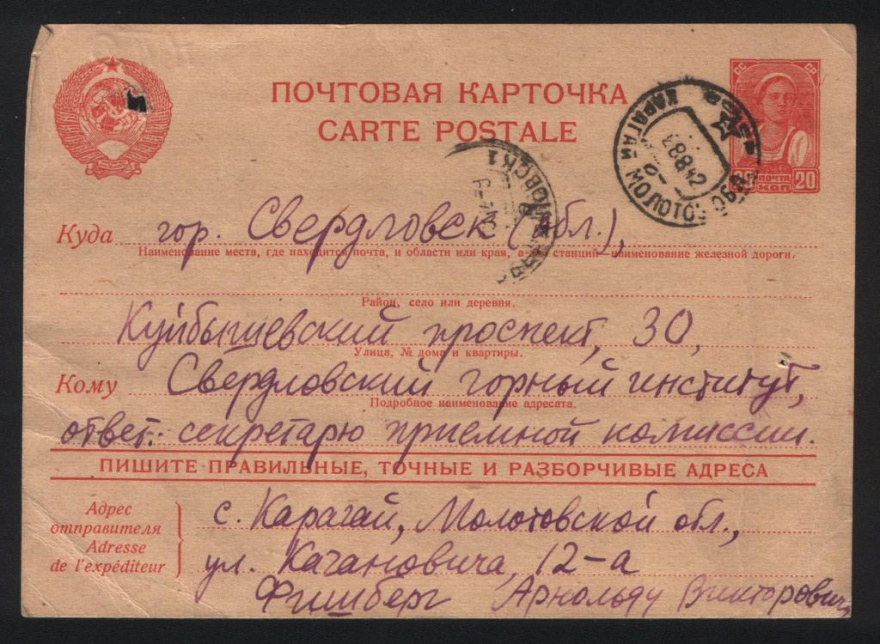 ПОЧТОВАЯ КАРТОЧКА
CARTE POSTALE
СС СР
ПОЧТА
20 КОП
КАРАГАЙ МОЛОТОВ
28 8 42
Куда гор. Свердловск (обл.),
Наименование места, где находится почта, и области или края, а для станций—наименование железной дороги.
Район, село или деревня.
Куйбышевский проспект, 30,
Улица, № дома и квартиры.
Кому Свердловский горный институт,
Подробное наименование адресата.
ответ. секретарю приемной комиссии.
ПИШИТЕ ПРАВИЛЬНЫЕ, ТОЧНЫЕ И РАЗБОРЧИВЫЕ АДРЕСА
Адрес
отправителя
Adresse
de l'expéditeur
с. Карагай, Молотовской обл.,
ул. Кагановича, 12-а
Фишберг Арнольду Викторовичу